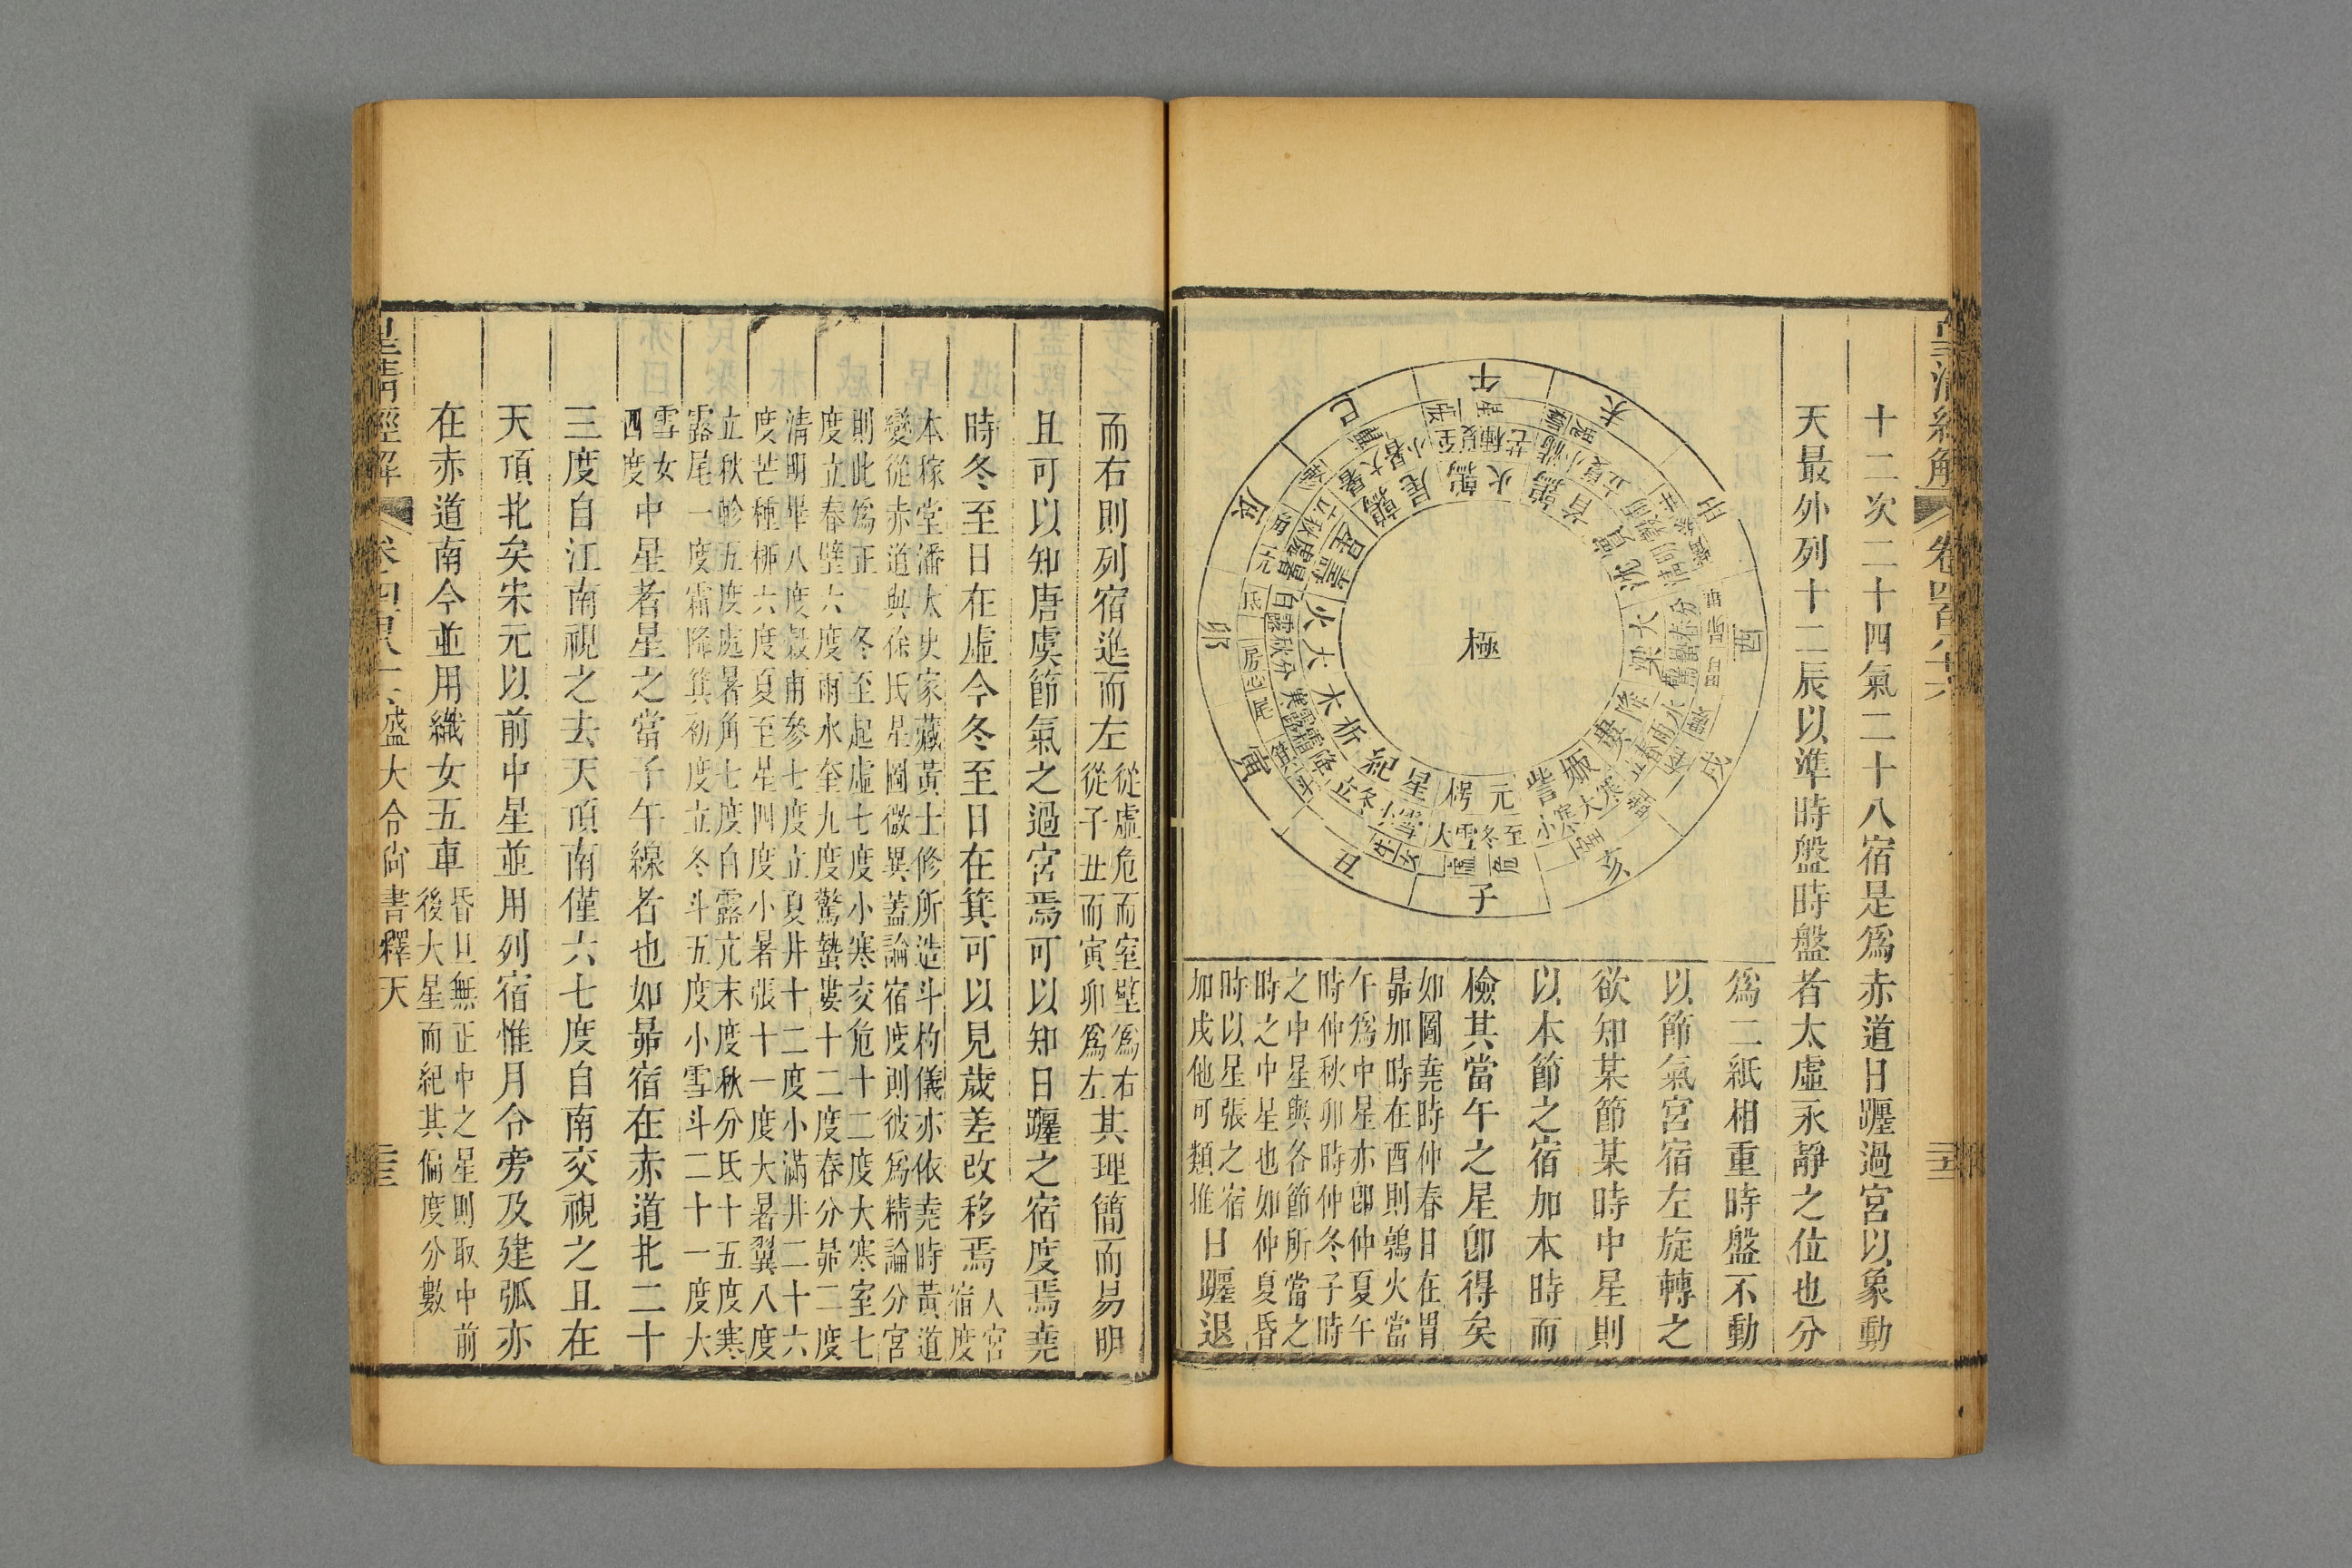 十二次二十四氣二十八宿是爲赤道日躔過宮以象動
天最外列十二辰以準時盤時盤者太虛永靜之位也分
爲二紙相重時盤不動
以節氣宮宿左旋轉之
欲知某節某時中星則
以本節之宿加本時而
檢其當午之星卽得矣
如圖堯時仲春日在胃
昴加時在酉則鶉火當
午爲中星亦卽仲夏午
時仲秋卯時仲冬子時
之中星與各節所當之
時之中星也如仲夏昏
時以星張之宿
加戌他可類推
日躔退
極
子
丑
寅
卯
辰
巳
午
未
申
酉
戌
亥
元枵
星紀
析木
大火
壽星
鶉尾
鶉火
鶉首
實沈
大梁
降婁
娵訾
而右則列宿進而左
從虛危而室壁爲右
從子丑而寅卯爲左
其理簡而易明
且可以知唐虞節氣之過宮焉可以知日躔之宿度焉堯
時冬至日在虛今冬至日在箕可以見歲差改移焉
入宮
宿度
本稼堂潘太史家藏黃士修所造斗杓儀亦依堯時黃道
變從赤道與徐氏星圖微異蓋論宿度則彼爲精論分宮
則此爲正 冬至起虛七度小寒交危十二度大寒室七
度立春壁六度雨水奎九度驚蟄婁十二度春分昴二度
清明畢八度穀雨參七度立夏井十二度小滿井二十六
度芒種柳六度夏至星四度小暑張十一度大暑翼八度
立秋軫五度處暑角七度白露亢末度秋分氐十五度寒
露尾一度霜降箕初度立冬斗五度小雪斗二十一度大
雪女
四度
中星者星之當子午線者也如昴宿在赤道北二十
三度自江南視之去天頂南僅六七度自南交視之且在
天頂北矣宋元以前中星並用列宿惟月令旁及建弧亦
在赤道南今並用織女五車
昏旦無正中之星則取中前
後大星而紀其偏度分數
盛大令尚書釋天